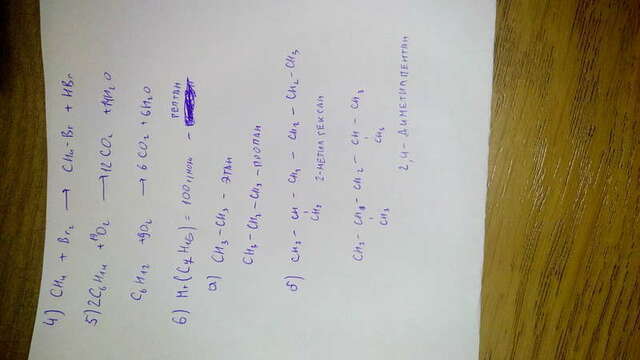 4) CH₄ + Br₂ → CH₄-Br + HBr
5) 2C₆H₁₄ + 19O₂ → 12CO₂ + 14H₂O
C₆H₁₂ + 9O₂ → 6CO₂ + 6H₂O
6) Mr(C₇H₁₆) = 100 г/моль - гептан
а) CH₃-CH₃ - этан
CH₃-CH₂-CH₃ - пропан
б) CH₃-CH-CH₂-CH₂-CH₂-CH₃
CH₃ 2-метилгексан
CH₃-CH-CH₂-CH-CH₃
CH₃ CH₃
2,4-диметилпентан